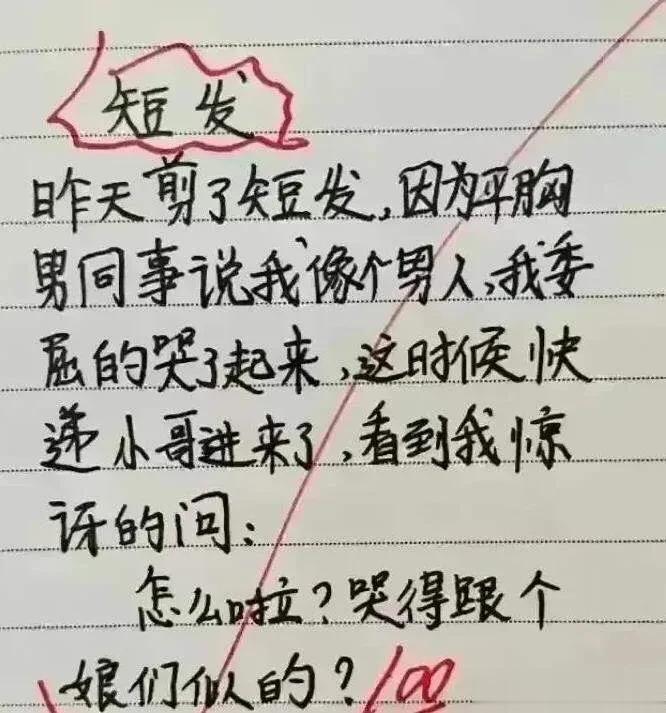 短发
昨天剪了短发,因为平胸
男同事说我像个男人,我委
屈的哭了起来,这时候快
递小哥进来了,看到我惊
讶的问:
怎么啦?哭得跟个
娘们似的?100